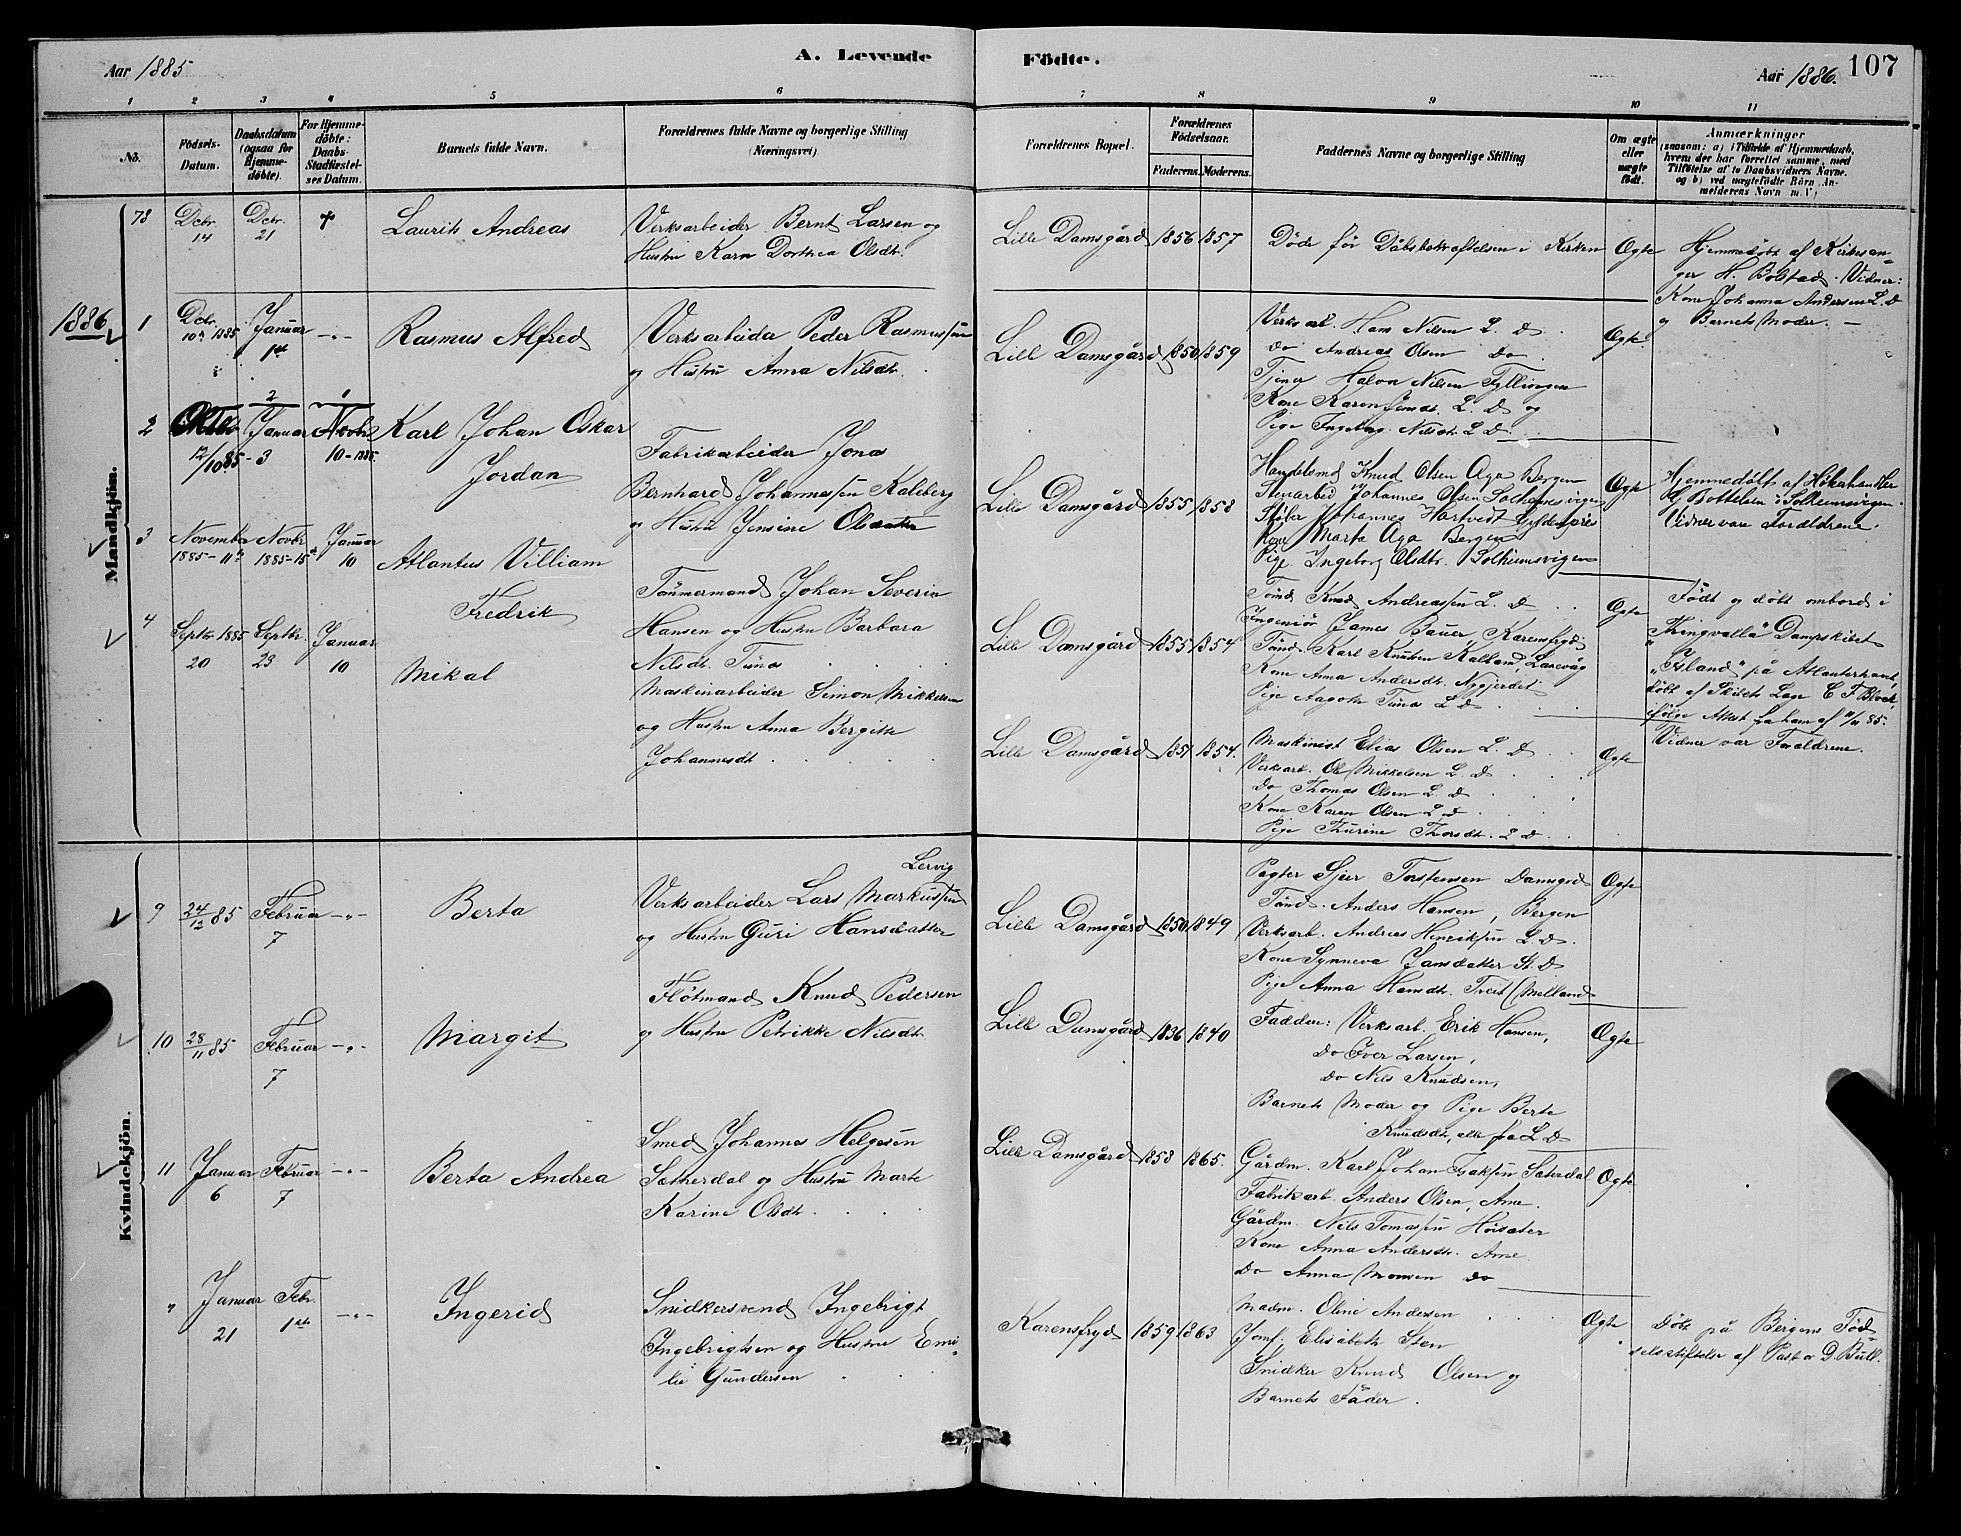 Aar 1885
A. Levende
Födte.
Aar 1886.
107
1 2 3 4 5 6 7 8 9 10 11
No.
Födsels-
Datum.
Daabsdatum
(ogsaa for
Hjemme-
döbte).
For Hjemme-
döbte:
Daabs-
Stadfæstel-
ses Datum.
Barnets fulde Navn.
Forældrenes fulde Navne og borgerlige Stilling
(Næringsvei).
Forældrenes Bopæl.
Forældrenes
Födselsaar.
Faderens. Moderens.
Faddernes Navne og borgerlige Stilling
Om ægte
eller
uægte
födt.
Anmærkninger
(saasom: a) i Tilfælde af Hjemmedaab,
hvem der har forrettet samme, med
Tilföielse af to Daabsvidners Navne.
og b) ved uægtefödte Börn An-
melderens Navn m. V.)
Mandkjön.
78
Decbr.
14
Decbr.
21
Laurits Andreas
Verksarbeider Bernt Larsen og
Hustru Karn Dorthea Olsdtr.
Lille Damsgård 1856 1857
Döde för Dåbsbekræftelsen i Kirken
Ægte
Hjemmedöbt af Kirkesan-
ger H. Bolstad. Vidner:
Kone Johanna Andersen L. D
og Barnets Moder. —
1886
1
Decbr.
10de 1885
Januar
1ste
-„-
Rasmus Alfred
Verksarbeider Peder Rasmussen
og Hustru Anna Nilsdtr.
Lille Damsgård 1850 1859
Verksarb. Hans Nilsen L. D
do Andreas Olsen do
Tjener Halvor Nilsen Fyllingen
Kone Karen Jensdtr. L. D og
Pige Ingeborg Nilsdtr. L D.
Ægte.
2
12/10 85
Januar
3
Novbr
10-1885.
Karl Johan Oskar
Jordan
Fabrikarbeider Jonas
Bernhard Johannessen Kaleberg
og Hustru Jensine Olsdatter
Lille Damsgård 1855 1858
Handelsmd Knud Olsen Aga Bergen
Stenarbeid Johannes Olsen Solheimsvigen
Johannes Hartvedt Gyldenpris
Kone Marta Aga Bergen
Pige Ingeborg Olsdtr. Solheimsvigen
Ægte
Hjemmedöbt af Hökerhandler
i Solheimsvigen.
Vidner vare Forældrene.
3
November
1885-11te
Novbr.
1885-15de
Januar
10
Atlantus Villiam
Fredrik
Tömmermand Johan Severin
Hansen og Hustru Barbara
Nilsdtr. Tunes
Lille Damsgård 1855 1854
Tömd. Knud Andreassen L. D
Ingeniör James Bauer, Karensfryd
Tömd. Karl Knutsen Kalland, Laxevåg
Kone Anna Andersdtr. Nygjerdet
Pige Aagote Tunes L D
Ægte
Födt og döbt ombord i
„Thingvalla" Dampskibet
„Island" på Atlanterhavet,
döbt af Skibets Læge C F Block,
ifölge Attest fra ham af 11/11 85.
Vidner var Forældrene.
4
Septbr 1885
20
Septbr.
23
Januar
10
Mikal
Maskinarbeider Simon Mikkelsen
og Hustru Anna Bergitte
Johannesdtr.
Lille Damsgård 1851 1854.
Maskinist Elias Olsen L. D
Verksarb. Ole Mikkelsen L. D
do Thomas Olsen L D
Kone Karen Olsen L D
Pige Thurine Thorsdtr. L D
Ægte
Kvindekjön.
9
24/12 85
Februar
7
-„-
Berta
Lervig
Verksarbeider Lars Markussen
og Hustru Guri Hansdatter
Lille Damsgård 1850 1849
Pagter Sjur Torstensen Damsgrd
Tömd. Anders Hansen, Bergen
Verksarb. Andreas Henriksen L D.
Kone Synneva Jansdatter St. D
Pige Anna Hansdtr. Treet (Melland
Ægte
10
28/11 85
Februar
7
-„-
Margit
Flötmand Knud Pedersen
og Hustru Petrikke Nilsdtr.
Lille Damsgård 1836 1840
Faddere: Verksarb. Erik Hansen,
do Iver Larsen,
do Nils Knudsen,
Barnets Moder og Pige Berte
Knudsdtr, alle fra L D
Ægte
11
Januar
6
Februar
7
-„-
Berta Andrea
Smed Johannes Helgesen
Sætherdal og Hustru Marte
Karine Olsdtr.
Lille Damsgård 1858 1865.
Gårdm. Karl Johan Isaksen Sæterdal
Fabrikarb. Anders Olsen, Arne.
Gårdm. Nils Tomassen Höisæter
Kone Anna Andersdtr. Arne
do Anna Monsen do
Ægte
Januar
21
Febr.
1ste
-„-
Ingerid
Snidkersvend Ingebrigt
Ingebrigtsen og Hustru Emi-
lie Gundersen
Karensfryd 1859 1863
Madm. Oline Andersen
Jomf. Elisabeth Sten
Snidker Knud Olsen og
Barnets Fader.
Ægte
Döbt på Bergens Föd-
selsstiftelse af Pastor D. Bull.